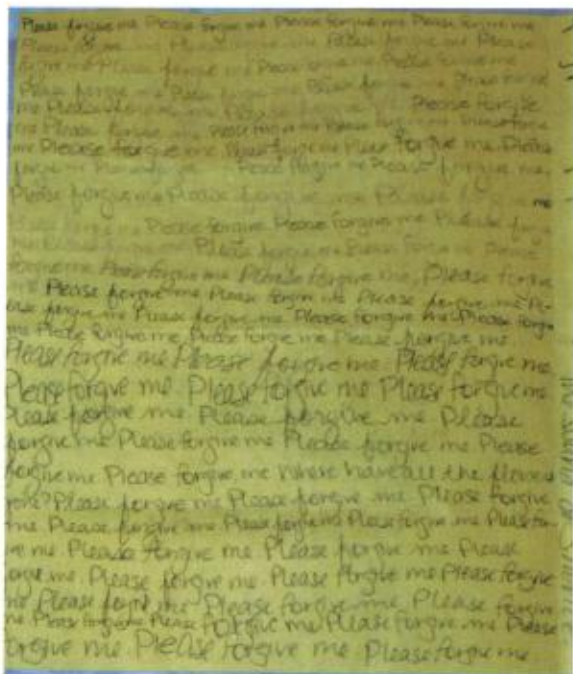 Please forgive me Please forgive me Please forgive me Please forgive me
Please forgive me Please forgive me Please forgive me Please
forgive me Please forgive me Please forgive me Please forgive me
Please forgive me Please forgive me Please forgive me
me Please forgive me Please forgive me Please forgive
me Please forgive me Please forgive me Please forgive me Please forgive
me Please forgive me Please forgive me Please forgive me. Please
forgive me Please forgive me Please forgive me Please forgive me.
Please forgive me Please forgive me Please forgive me
forgive me Please forgive Please forgive me Please
forgive me Please forgive me Please forgive me Please
forgive me Please forgive me Please forgive me, Please forgive
me Please forgive me Please forgive me Please forgive me
forgive me Please forgive me. Please forgive me Please forgive
me Please forgive me Please forgive me Please forgive me
Please forgive me Please forgive me Please forgive me
Please forgive me Please forgive me Please forgive me
Please forgive me. Please forgive me Please
forgive me Please forgive me Please forgive me Please
forgive me. Please forgive me where have all the flowers
gone? Please forgive me Please forgive me Please forgive
me Please forgive me Please forgive me Please forgive me
me Please forgive me Please forgive me Please
forgive me Please forgive me Please forgive me Please forgive
me Please forgive me Please forgive me, Please forgive
me Please forgive me Please forgive me Please forgive me Please
forgive me Please forgive me Please forgive me
of silence